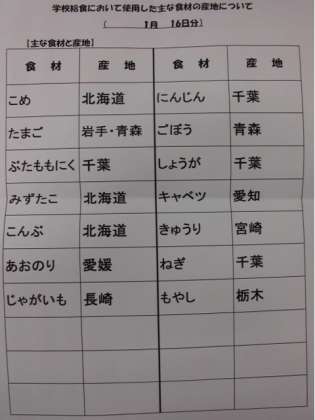 学校給食において使用した主な食材の産地について
( 1月 16日分)
【主な食材と産地】
食 材 産 地 食 材 産 地
こめ 北海道 にんじん 千葉
たまご 岩手・青森 ごぼう 青森
ぶたももにく 千葉 しょうが 千葉
みずたこ 北海道 キャベツ 愛知
こんぶ 北海道 きゅうり 宮崎
あおのり 愛媛 ねぎ 千葉
じゃがいも 長崎 もやし 栃木